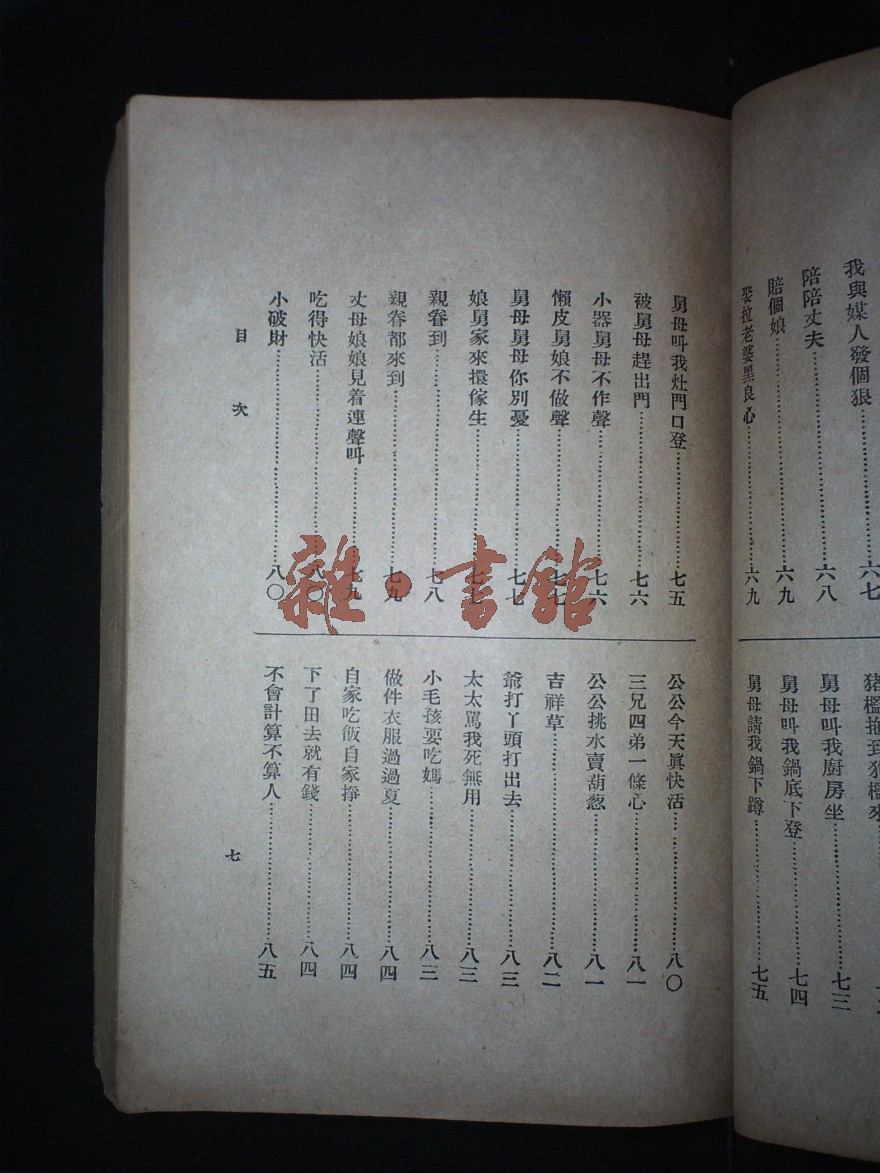 我與媒人發個狠…………六七
陪陪丈夫…………六八
賠個娘…………六九
娶拉老婆黑良心…………六九
舅母叫我廚房坐…………七三
舅母叫我鍋底下登…………七四
舅母請我鍋下蹲…………七五
舅母叫我灶門口登…………七五
被舅母趕出門…………七六
小器舅母不作聲…………七六
懶皮舅娘不做聲…………七七
舅母舅母你別憂…………七七
娘舅家來擐傢生…………七七
親眷到…………七八
親眷都來到…………七九
丈母娘娘見着連聲叫…………七九
吃得快活…………八〇
小破財…………八〇
公公今天眞快活…………八〇
三兄四弟一條心…………八一
公公挑水賣葫葱…………八一
吉祥草…………八二
爺打丫頭打出去…………八三
太太罵我死無用…………八三
小毛孩要吃媽…………八三
做件衣服過過夏…………八四
自家吃飯自家掙…………八四
下了田去就有錢…………八四
不會計算不算人…………八五
目次
七
雜·書館